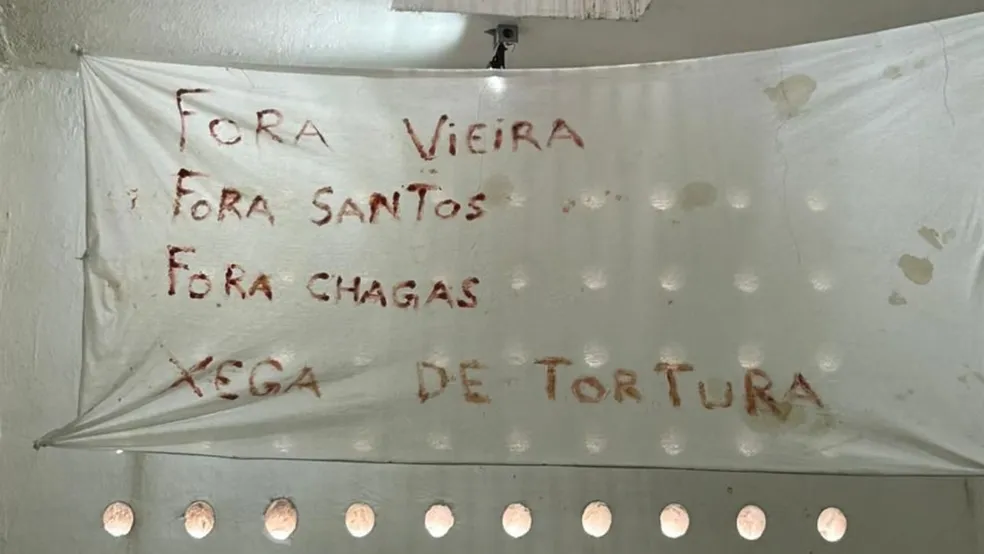 FORA VIEIRA
FORA SANTOS
FORA CHAGAS
XEGA DE TORTURA